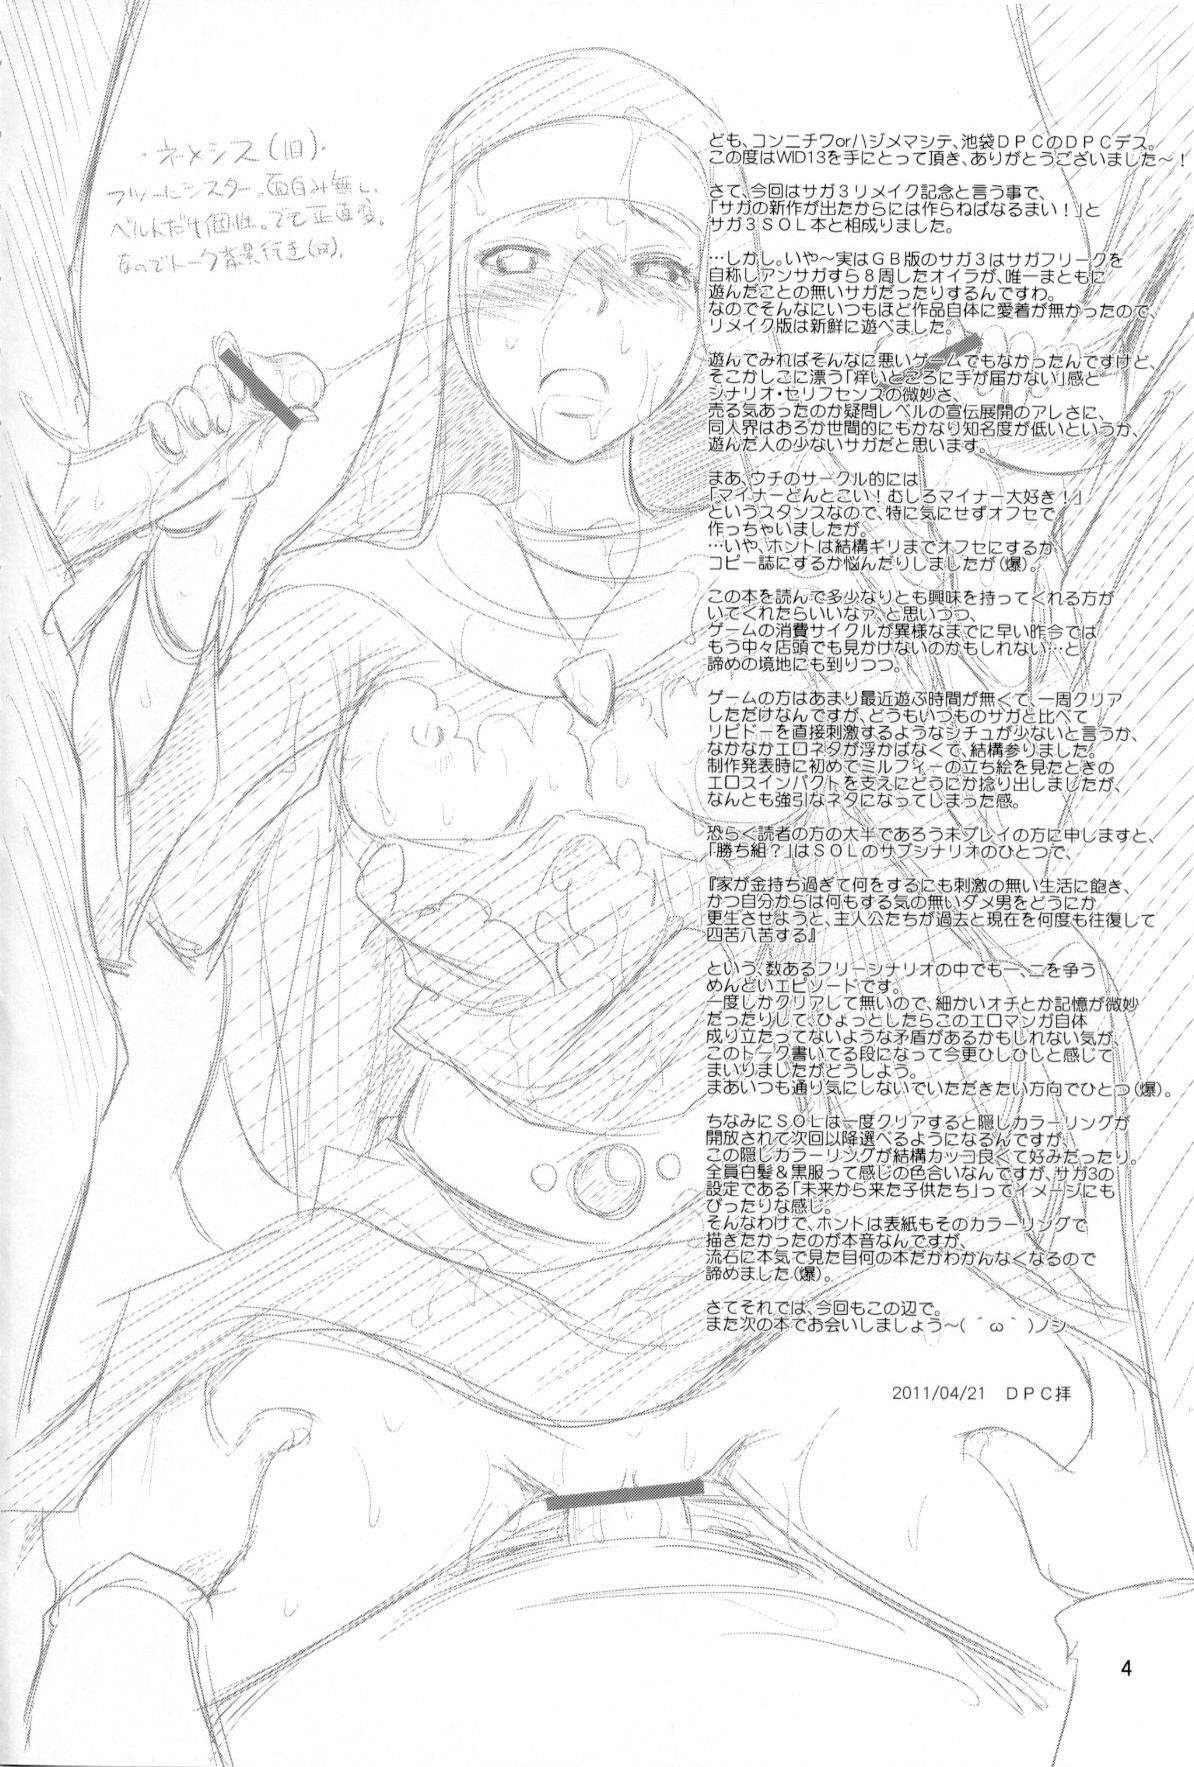 ・ネメシス(旧)・
フツーにシスター。面白み無し。
ベルトだけ個性。でも正直変。
なのでトーク背景行き(笑)。
ども、コンニチワorハジメマシテ、池袋ＤＰＣのＤＰＣデス。
この度はWID13を手にとって頂き、ありがとうございました～！
さて、今回はサガ３リメイク記念と言う事で、
「サガの新作が出たからには作らねばなるまい！」と
サガ３ＳＯＬ本と相成りました。
…しかし。いや～実はＧＢ版のサガ３はサガフリークを
自称しアンサガすら８周したオイラが、唯一まともに
遊んだことの無いサガだったりするんですわ。
なのでそんなにいつもほど作品自体に愛着が無かったので、
リメイク版は新鮮に遊べました。
遊んでみればそんなに悪いゲームでもなかったんですけど、
そこかしこに漂う「痒いところに手が届かない」感と
シナリオ・セリフセンスの微妙さ、
売る気あったのか疑問レベルの宣伝展開のアレさに、
同人界はおろか世間的にもかなり知名度が低いというか、
遊んだ人の少ないサガだと思います。
まあ、ウチのサークル的には
「マイナーどんとこい！むしろマイナー大好き！」
というスタンスなので、特に気にせずオフセで
作っちゃいましたが。
…いや、ホントは結構ギリまでオフセにするか
コピー誌にするか悩んだりしましたが(爆)。
この本を読んで多少なりとも興味を持ってくれる方が
いてくれたらいいなァ、と思いつつ、
ゲームの消費サイクルが異様なまでに早い昨今では
もう中々店頭でも見かけないのかもしれない…と
諦めの境地にも到りつつ。
ゲームの方はあまり最近遊ぶ時間が無くて、一周クリア
しただけなんですが、どうもいつものサガと比べて
リビドーを直接刺激するようなシチュが少ないと言うか、
なかなかエロネタが浮かばなくて、結構参りました。
制作発表時に初めてミルフィーの立ち絵を見たときの
エロスインパクトを支えにどうにか捻り出しましたが、
なんとも強引なネタになってしまった感。
恐らく読者の方の大半であろう未プレイの方に申しますと、
「勝ち組？」はＳＯＬのサブシナリオのひとつで、
『家が金持ち過ぎて何をするにも刺激の無い生活に飽き、
かつ自分からは何もする気の無いダメ男をどうにか
更生させようと、主人公たちが過去と現在を何度も往復して
四苦八苦する』
という、数あるフリーシナリオの中でも一、二を争う
めんどいエピソードです。
一度しかクリアして無いので、細かいオチとか記憶が微妙
だったりして、ひょっとしたらこのエロマンガ自体
成り立たってないような矛盾があるかもしれない気が、
このトーク書いてる段になって今更ひしひしと感じて
まいりましたがどうしよう。
まあいつも通り気にしないでいただきたい方向でひとつ(爆)。
ちなみにＳＯＬは一度クリアすると隠しカラーリングが
開放されて次回以降選べるようになるんですが、
この隠しカラーリングが結構カッコ良くて好みだったり。
全員白髪＆黒服って感じの色合いなんですが、サガ3の
設定である「未来から来た子供たち」ってイメージにも
ぴったりな感じ。
そんなわけで、ホントは表紙もそのカラーリングで
描きたかったのが本音なんですが、
流石に本気で見た目何の本だかわかんなくなるので
諦めました(爆)。
さてそれでは、今回もこの辺で。
また次の本でお会いしましょう～(｀ω｀)ノシ
2011/04/21　ＤＰＣ拝
4